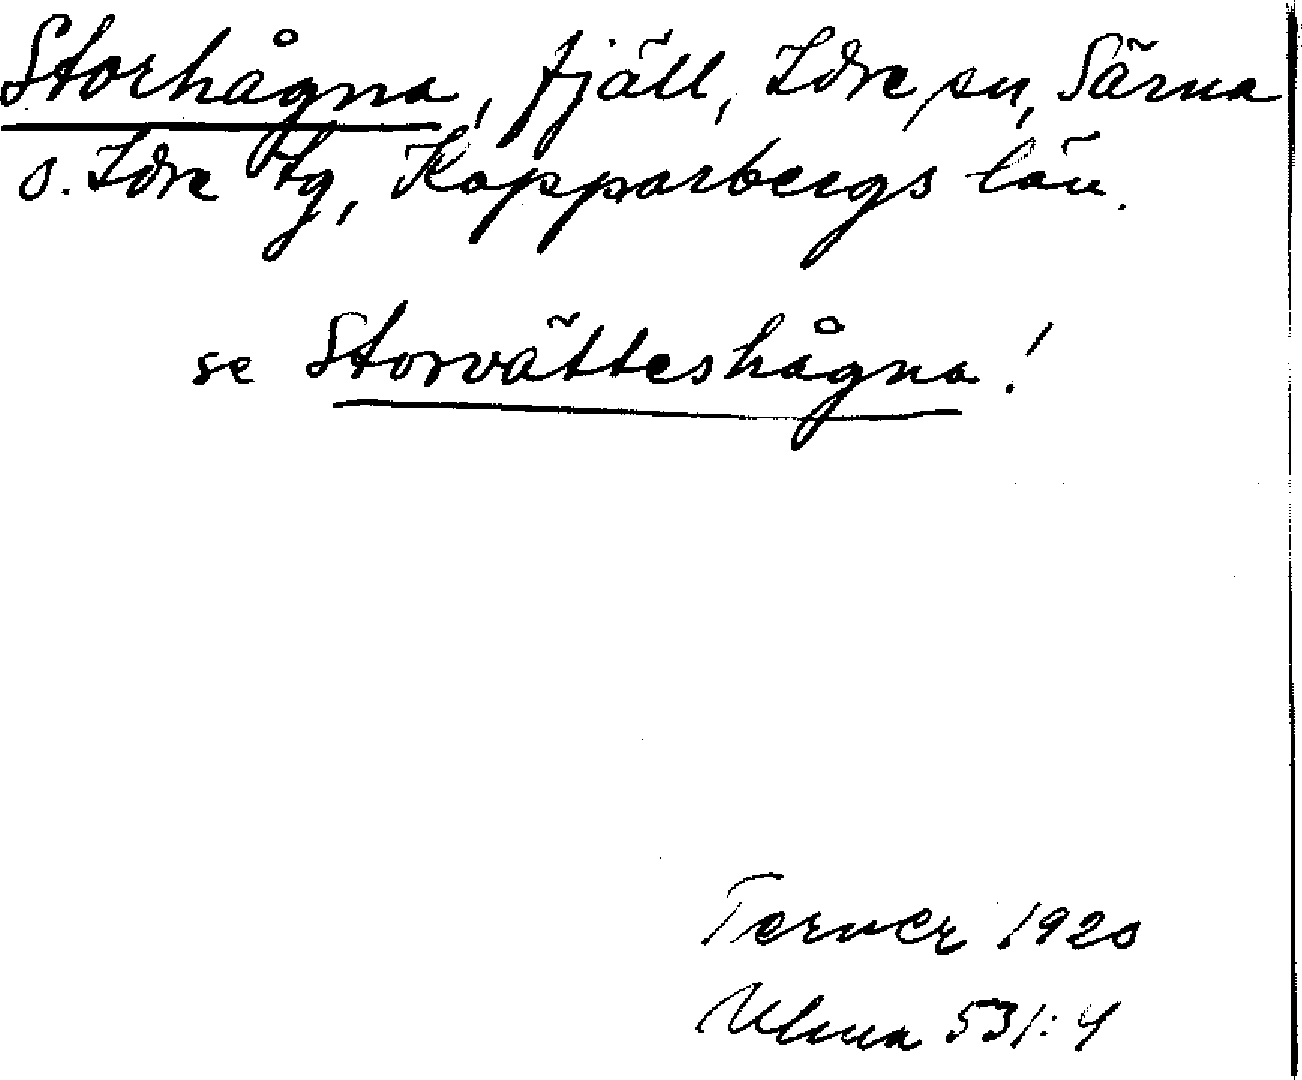 Storhågna, fjäll, Idre sn, Särna
o. Idre tg, Kopparbergs län.
se Storvätteshågna!
Terner 1920
Ulma 531:4